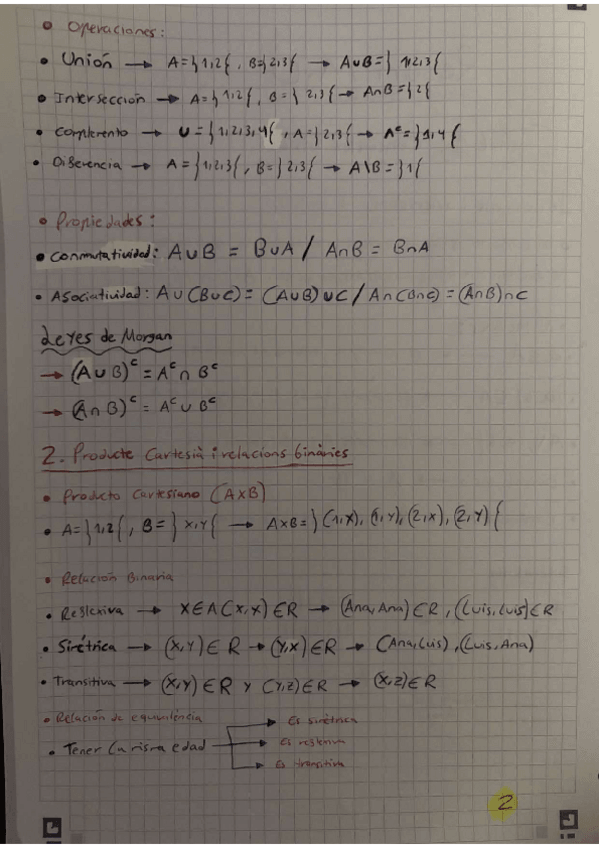 • Operaciones:
• Unión → A=}1,2{, B=}2,3{ → A∪B=} 1,2,3{
• Intersección → A=}1,2{, B=} 2,3{ → A∩B=}2{
• Complemento → U=}1,2,3,4{, A=}2,3{ → Aᶜ=}1,4{
• Diferencia → A=}1,2,3{, B=}2,3{ → A\B=}1{
• Propiedades:
• Conmutatividad: A∪B = B∪A / A∩B = B∩A
• Asociatividad: A∪(B∪C)=(A∪B)∪C / A∩(B∩C)=(A∩B)∩C
Leyes de Morgan
→ (A∪B)ᶜ = Aᶜ∩Bᶜ
→ (A∩B)ᶜ = Aᶜ∪Bᶜ
2. Producte Cartesià i relacions binàries
• Producto Cartesiano (A×B)
• A=}1,2{, B=}x,y{ → A×B=}(1,x),(1,y),(2,x),(2,y){
• Relación Binaria
• Reflexiva → x∈A(x,x)∈R → (Ana,Ana)∈R,(Luis,Luis)∈R
• Simétrica → (x,y)∈R → (y,x)∈R → (Ana,Luis),(Luis,Ana)
• Transitiva → (x,y)∈R y (y,z)∈R → (x,z)∈R
• Relación de equivalència
→ Es simétrica
• Tener la misma edad → Es reflexiva
→ Es transitiva
2